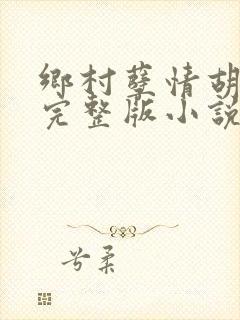 鄉村孽情胡
完整版小説
兮柔